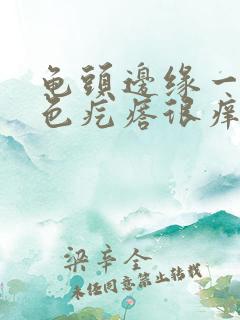 龟頭邊缘一
色疙瘩很痒
梁辛全
未经同意禁止转载